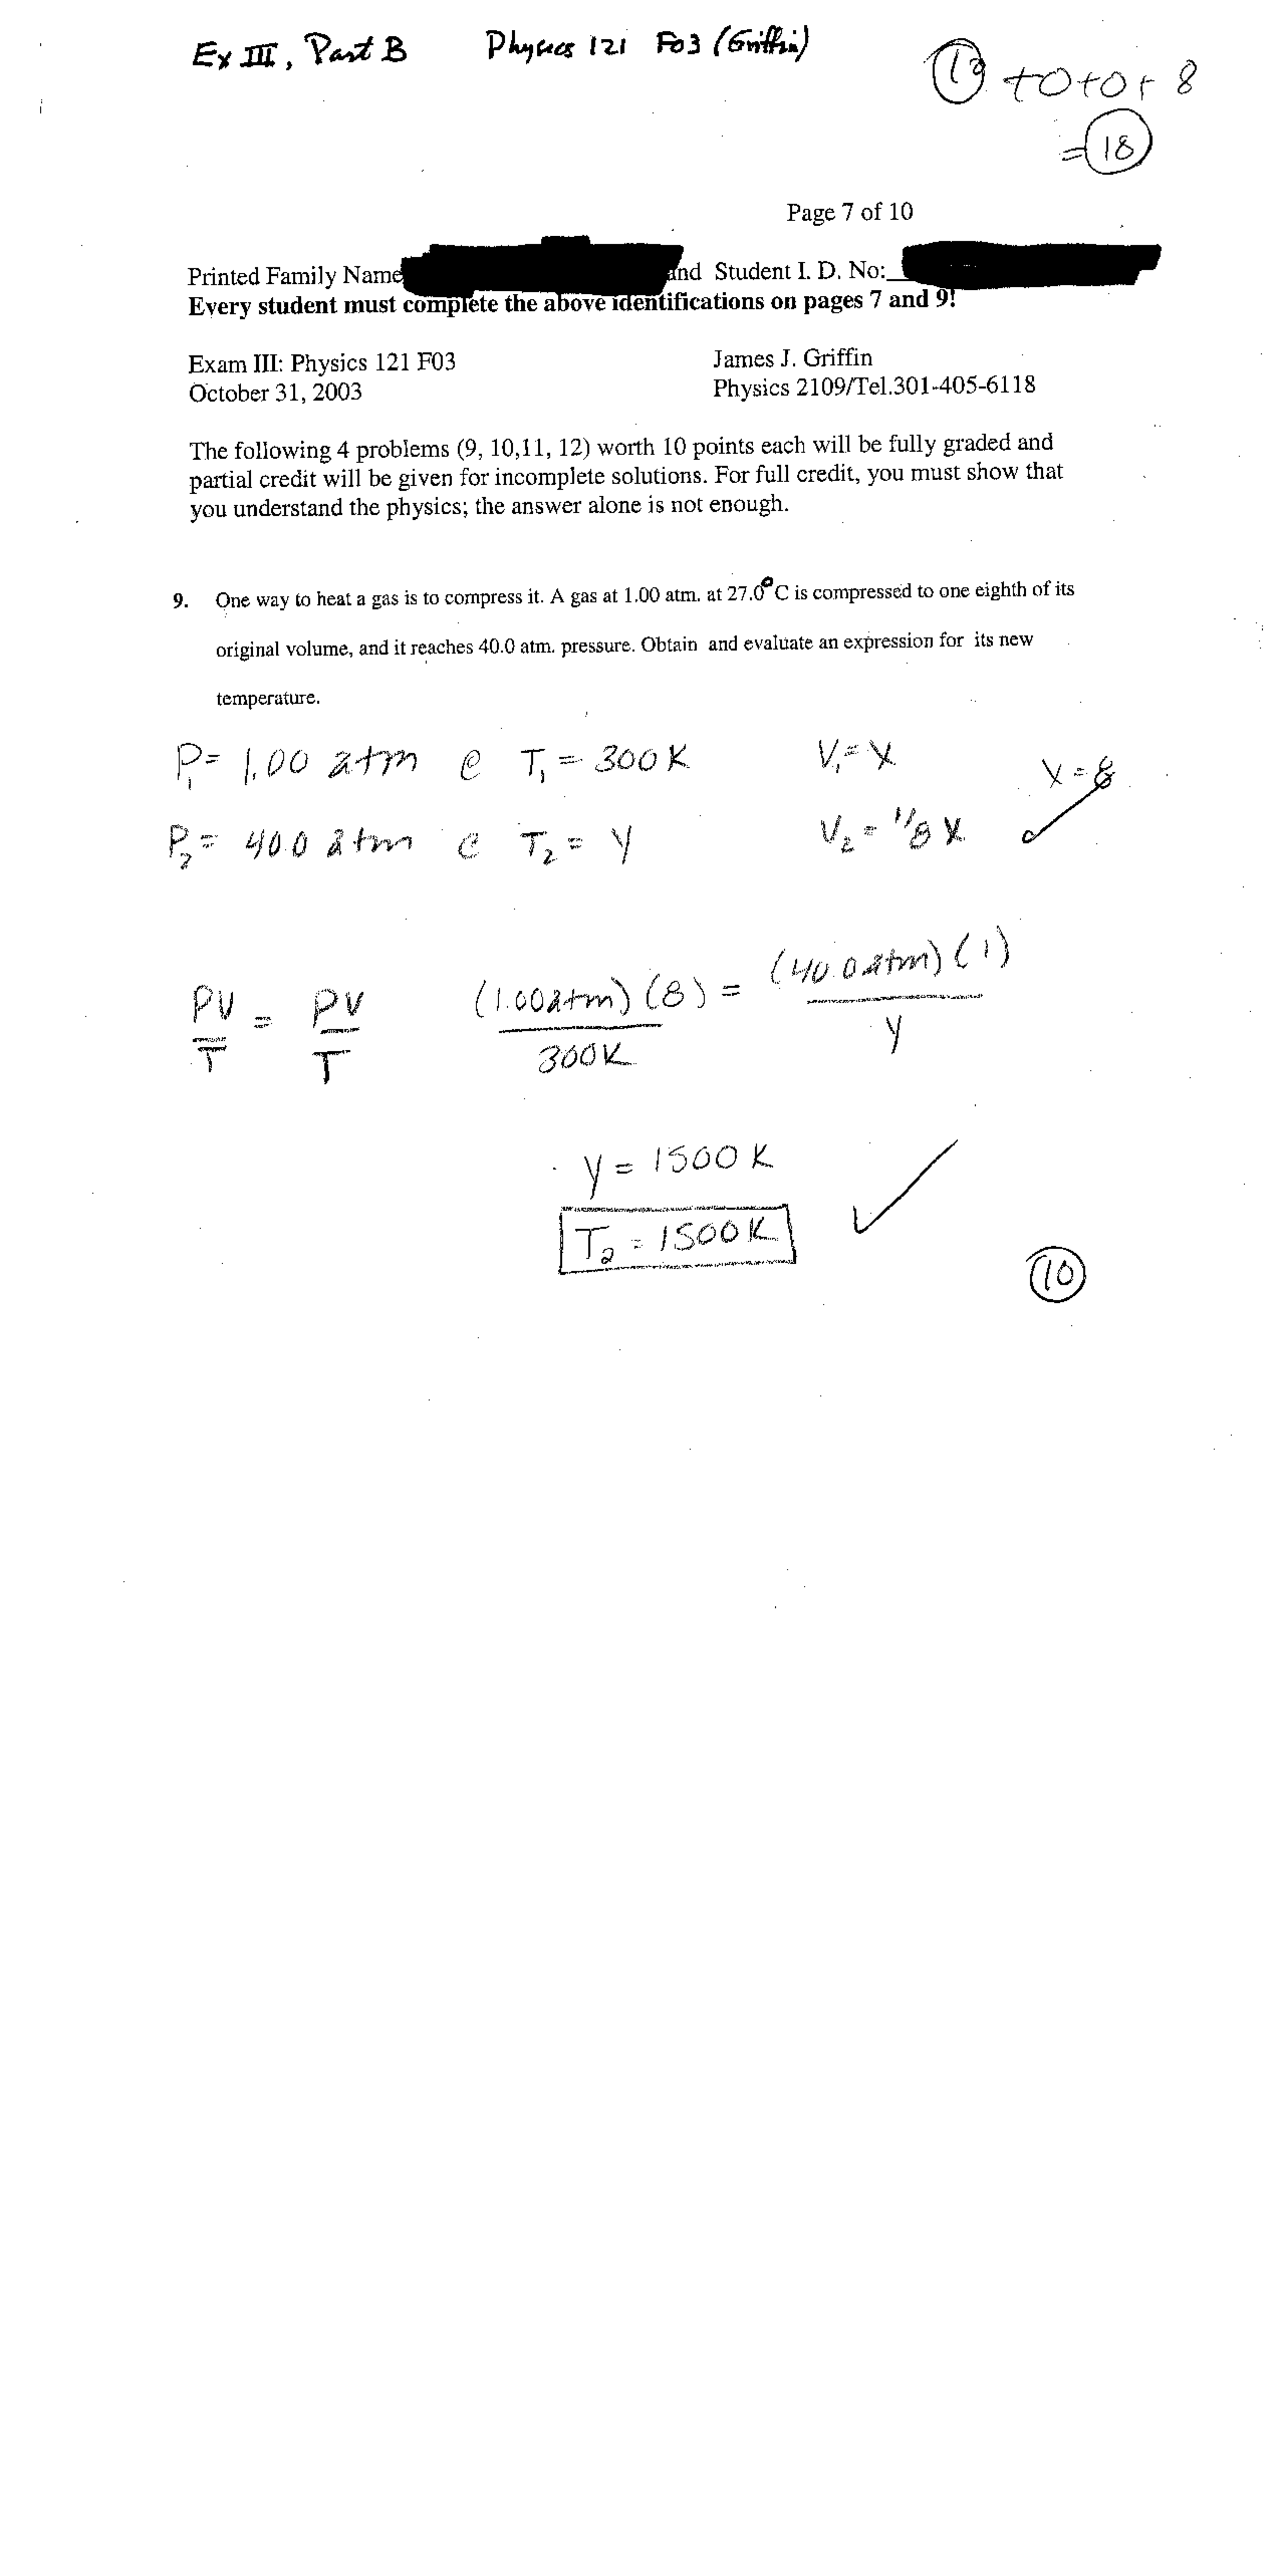 Ex III, Part B Physics 121 F03 (Griffin)
10 + 0 + 0 + 8
= 18
Page 7 of 10
Printed Family Name and Student I. D. No:
Every student must complete the above identifications on pages 7 and 9!
Exam III: Physics 121 F03 James J. Griffin
October 31, 2003 Physics 2109/Tel.301-405-6118
The following 4 problems (9, 10,11, 12) worth 10 points each will be fully graded and
partial credit will be given for incomplete solutions. For full credit, you must show that
you understand the physics; the answer alone is not enough.
9. One way to heat a gas is to compress it. A gas at 1.00 atm. at 27.0°C is compressed to one eighth of its
original volume, and it reaches 40.0 atm. pressure. Obtain and evaluate an expression for its new
temperature.
P₁= 1.00 atm @ T₁ = 300 K V₁ = X X = 8
P₂= 40.0 atm @ T₂ = Y V₂ = 1/8 X
PV/T = PV/T (1.00atm)(8)/300K = (40.0atm)(1)/Y
Y = 1500 K
T₂ = 1500K
10